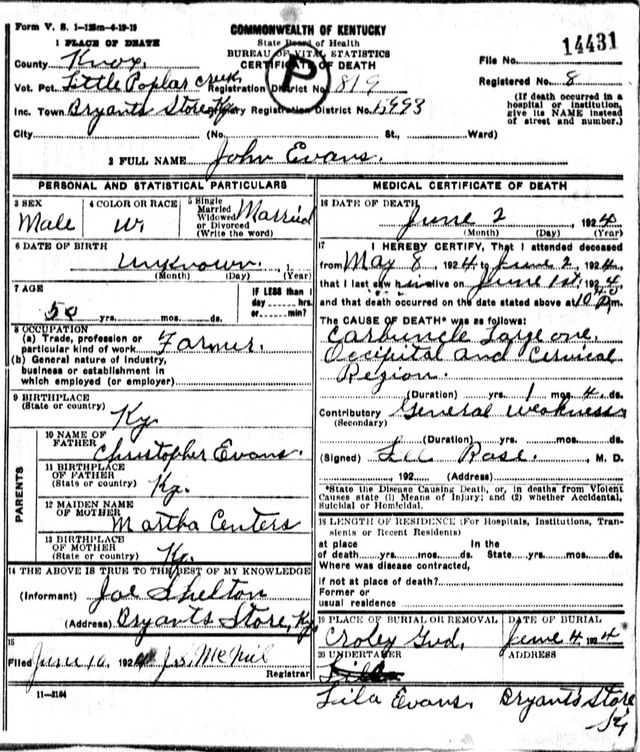 Form V. S. 1—125m—6-19-19
COMMONWEALTH OF KENTUCKY
State Board of Health
BUREAU OF VITAL STATISTICS
CERTIFICATE OF DEATH
P
14431
File No.
Registered No. 8
(If death occurred in a hospital or institution, give its NAME instead of street and number.)
1 PLACE OF DEATH
County Knox
Vot. Pct. Little Poplar Creek Registration District No. 819
Inc. Town Bryants Store Ky. Primary Registration District No. 5993
City (No. St., Ward)
2 FULL NAME John Evans.
PERSONAL AND STATISTICAL PARTICULARS
3 SEX
Male
4 COLOR OR RACE
W.
5 Single
Married
Widowed
or Divorced
(Write the word)
Married
6 DATE OF BIRTH
Unknown. , 1
(Month) (Day) (Year)
7 AGE
50 yrs. mos. ds.
IF LESS than 1
day hrs.
or min?
8 OCCUPATION
(a) Trade, profession or
particular kind of work Farmer.
(b) General nature of industry,
business or establishment in
which employed (or employer)
9 BIRTHPLACE
(State or country)
Ky.
PARENTS
10 NAME OF
FATHER
Christopher Evans.
11 BIRTHPLACE
OF FATHER
(State or country)
Ky.
12 MAIDEN NAME
OF MOTHER
Martha Centers
13 BIRTHPLACE
OF MOTHER
(State or country)
Ky.
14 THE ABOVE IS TRUE TO THE BEST OF MY KNOWLEDGE
(Informant) Joe Shelton
(Address) Bryants Store, Ky.
15
Filed June 10, 1924
Registrar
11—3184
MEDICAL CERTIFICATE OF DEATH
16 DATE OF DEATH
June 2 , 1924
(Month) (Day) (Year)
17 I HEREBY CERTIFY, That I attended deceased
from May 8, 1924 to June 2, 1924,
that I last saw him alive on June 1st, 1924,
and that death occurred on the date stated above at 10 P.m.
The CAUSE OF DEATH* was as follows:
Carbuncle Large one.
Occipital and Cervical
Region.
(Duration) yrs. 1 mos. 4 ds.
Contributory General Weakness
(Secondary)
(Duration) yrs. mos. ds.
(Signed) , M. D.
, 192 (Address)
*State the Disease Causing Death, or, in deaths from Violent
Causes state (1) Means of Injury; and (2) whether Accidental,
Suicidal or Homicidal.
18 LENGTH OF RESIDENCE (For Hospitals, Institutions, Tran-
sients or Recent Residents)
at place In the
of death yrs. mos. ds. State yrs. mos. ds.
Where was disease contracted,
if not at place of death?
Former or
usual residence
19 PLACE OF BURIAL OR REMOVAL
Croley Gvd.
DATE OF BURIAL
June 4, 1924
20 UNDERTAKER
Lila Evans.
ADDRESS
Bryants Store
Ky